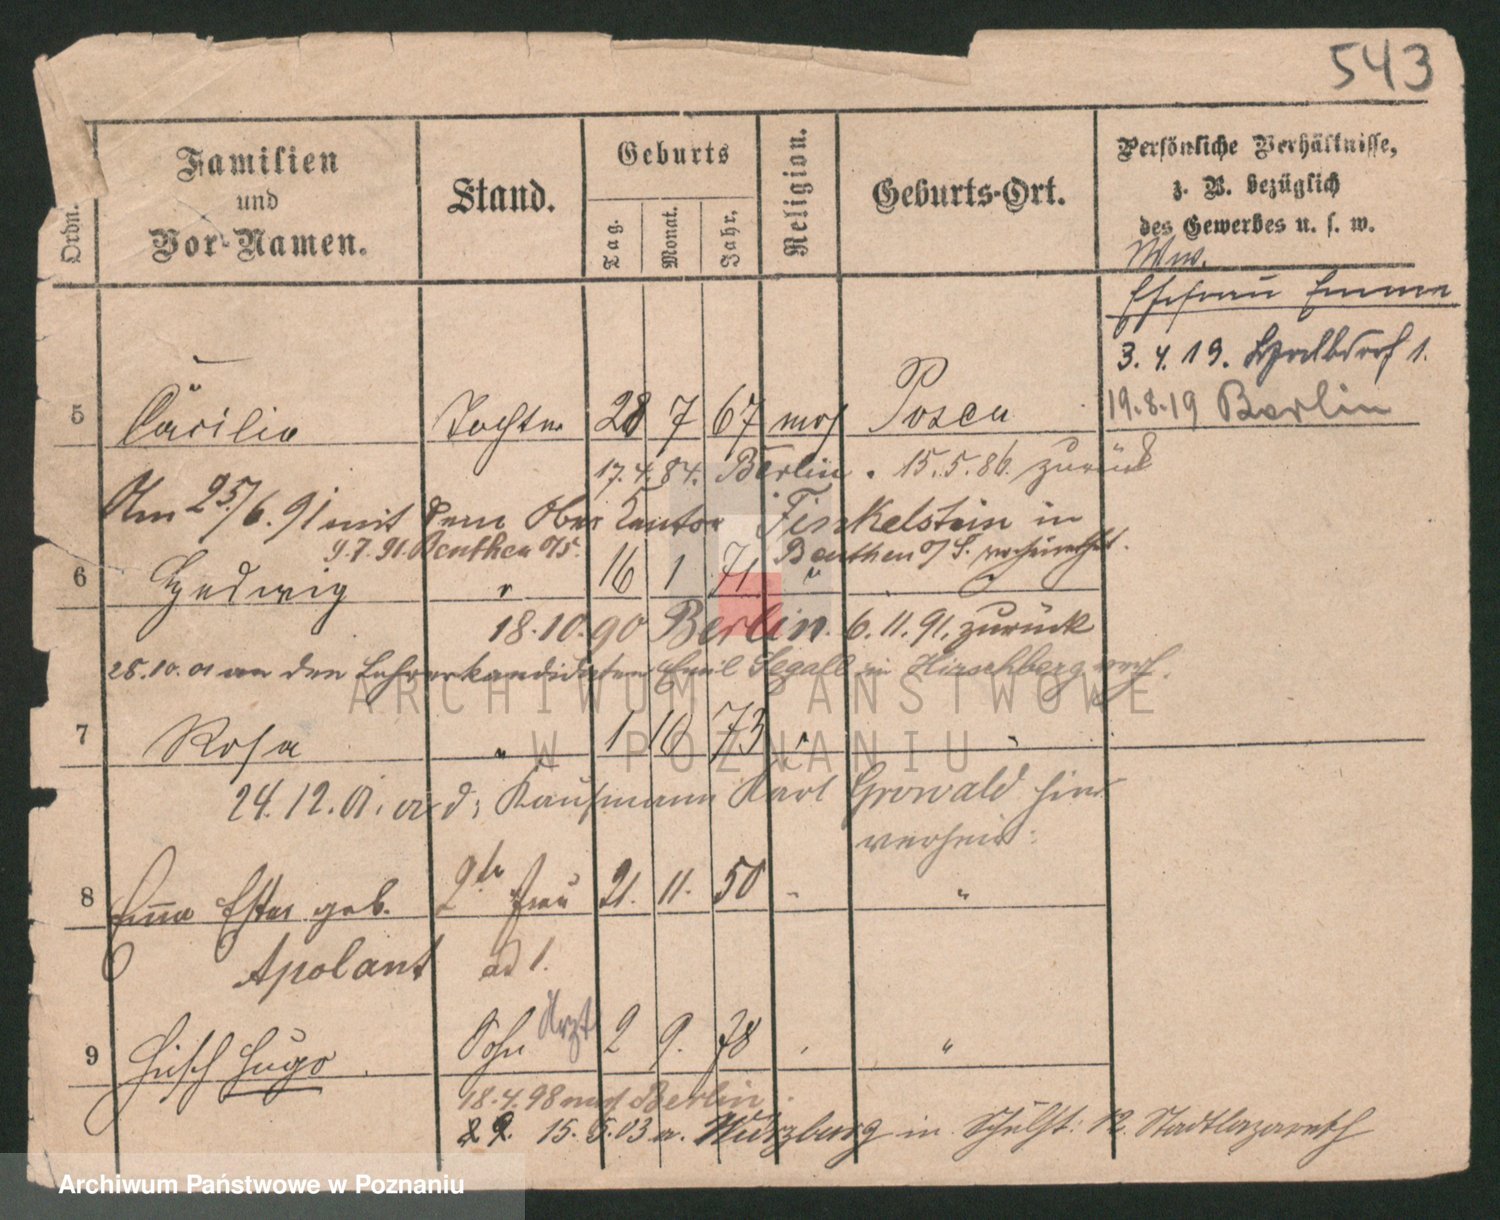 543
Ordn.
Familien
und
Vor-Namen.
Stand.
Geburts
Tag.
Monat.
Jahr.
Religion.
Geburts-Ort.
Persönliche Verhältnisse,
z. B. bezüglich
des Gewerbes u. s. w.
Ww.
Ehefrau Emma
3.4.19. 1.
19.8.19 Berlin
5 Cäcilie Tochter 28 7 67 mos Posen
17.4.84. Berlin. 15.5.86. zurück
Am 25/6.91 mit dem Ober Cantor Finkelstein in
9.7.91. Beuthen O/S. Beuthen O/S. verheirathet.
6 Hedwig " 16 1 71 "
18.10.90 Berlin. 6.11.91. zurück
an den Lehrerkandidaten Emil Segall in Hirschberg verh.
7 Rosa " 1 10 73 "
24.12.01. a. d. Kaufmann Karl Growald hier
verheir.
8 Emma Ester geb. 2te Frau 21. 11. 50 "
Apolant ad 1.
9 Hirsch Hugo Sohn Arzt 2 9. 78 "
18.4.98 nach Berlin.
15.5.03 a. Würzburg in Schulst. 12. Stadtlazareth
ARCHIWUM PAŃSTWOWE
W POZNANIU
Archiwum Państwowe w Poznaniu